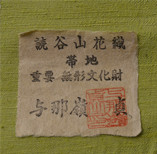 読谷山花織
帯地
重要無形文化財
与那嶺貞